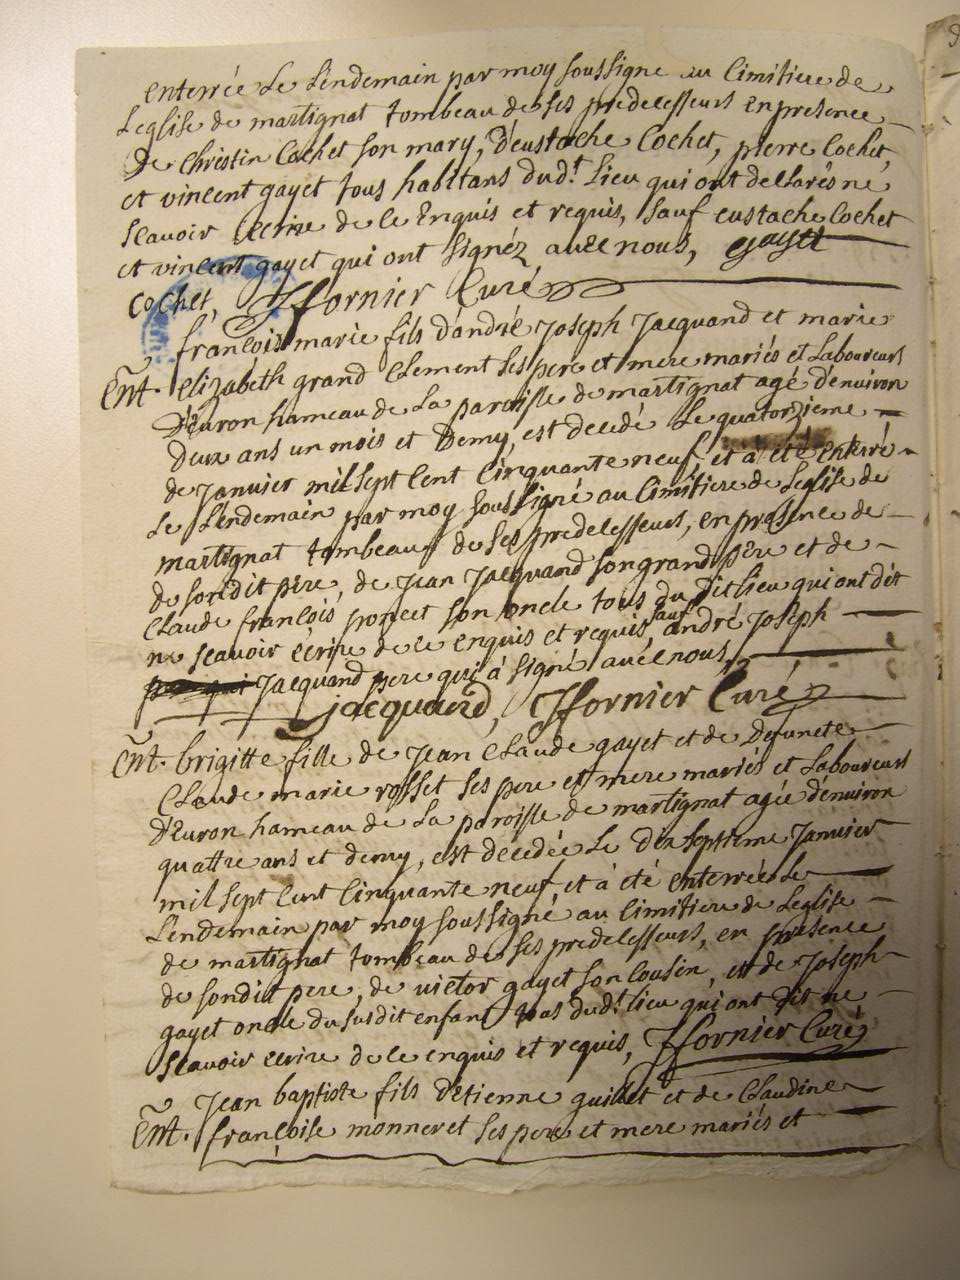 enterrée le lendemain par moy soussigné au cimitiere de
Leglise de martignat tombeau de ses predecesseurs en presence
de Christin Cochet son mary, d'eustache Cochet, pierre Cochet,
et vincent gayet tous habitans dud.t lieu qui ont declarés ne
sçavoir écrire de ce Enquis et requis, sauf eustache Cochet
et vincent gayet qui ont signéz avec nous, gayet
cochet, JJfornier Curé
françois marie fils d'andré Joseph Jacquand et marie
Ent. elizabéth grand Clement ses pere et mere mariés et Laboureurs
D'Evron hameau de La paroisse de martignat agé d'environ
deux ans un mois et Demy, est decedé Le quatorzieme
de Janvier mil sept cent cinquante neuf et à été enterré
Le Lendemain par moy soussigné au cimitiere de Leglise de
martignat tombeaux de ses predecesseurs, en presence de
de sondit pere, de Jean Jacquand son grand pere et de
Claude françois poncet son oncle tous du dit lieu qui ont dit
ne sçavoir écrire de ce enquis et requis sauf andré Joseph
Jacquand pere qui à signé avec nous,
jacquand, JJfornier Curé
Ent. brigitte fille de Jean Claude gayet et de Defuncte
Claude marie rosset ses pere et mere mariés et Laboureurs
D'Evron hameau de La paroisse de martignat agée d'environ
quattre ans et demy, est décedée Le dix septieme Janvier
mil sept cent cinquante neuf et à été enterrée Le
Lendemain par moy soussigné au cimitiere de Leglise
de martignat tombeau de ses predecesseurs, en presence
de sondit pere, de victor gayet son cousin, et de Joseph
gayet oncle du susdit enfant tous dud.t lieu qui ont dit ne
sçavoir ecrire de ce enquis et requis, JJfornier Curé
Jean baptiste fils d'Etienne guillet et de Claudine
Ent. françoise monneret ses pere et mere mariés et